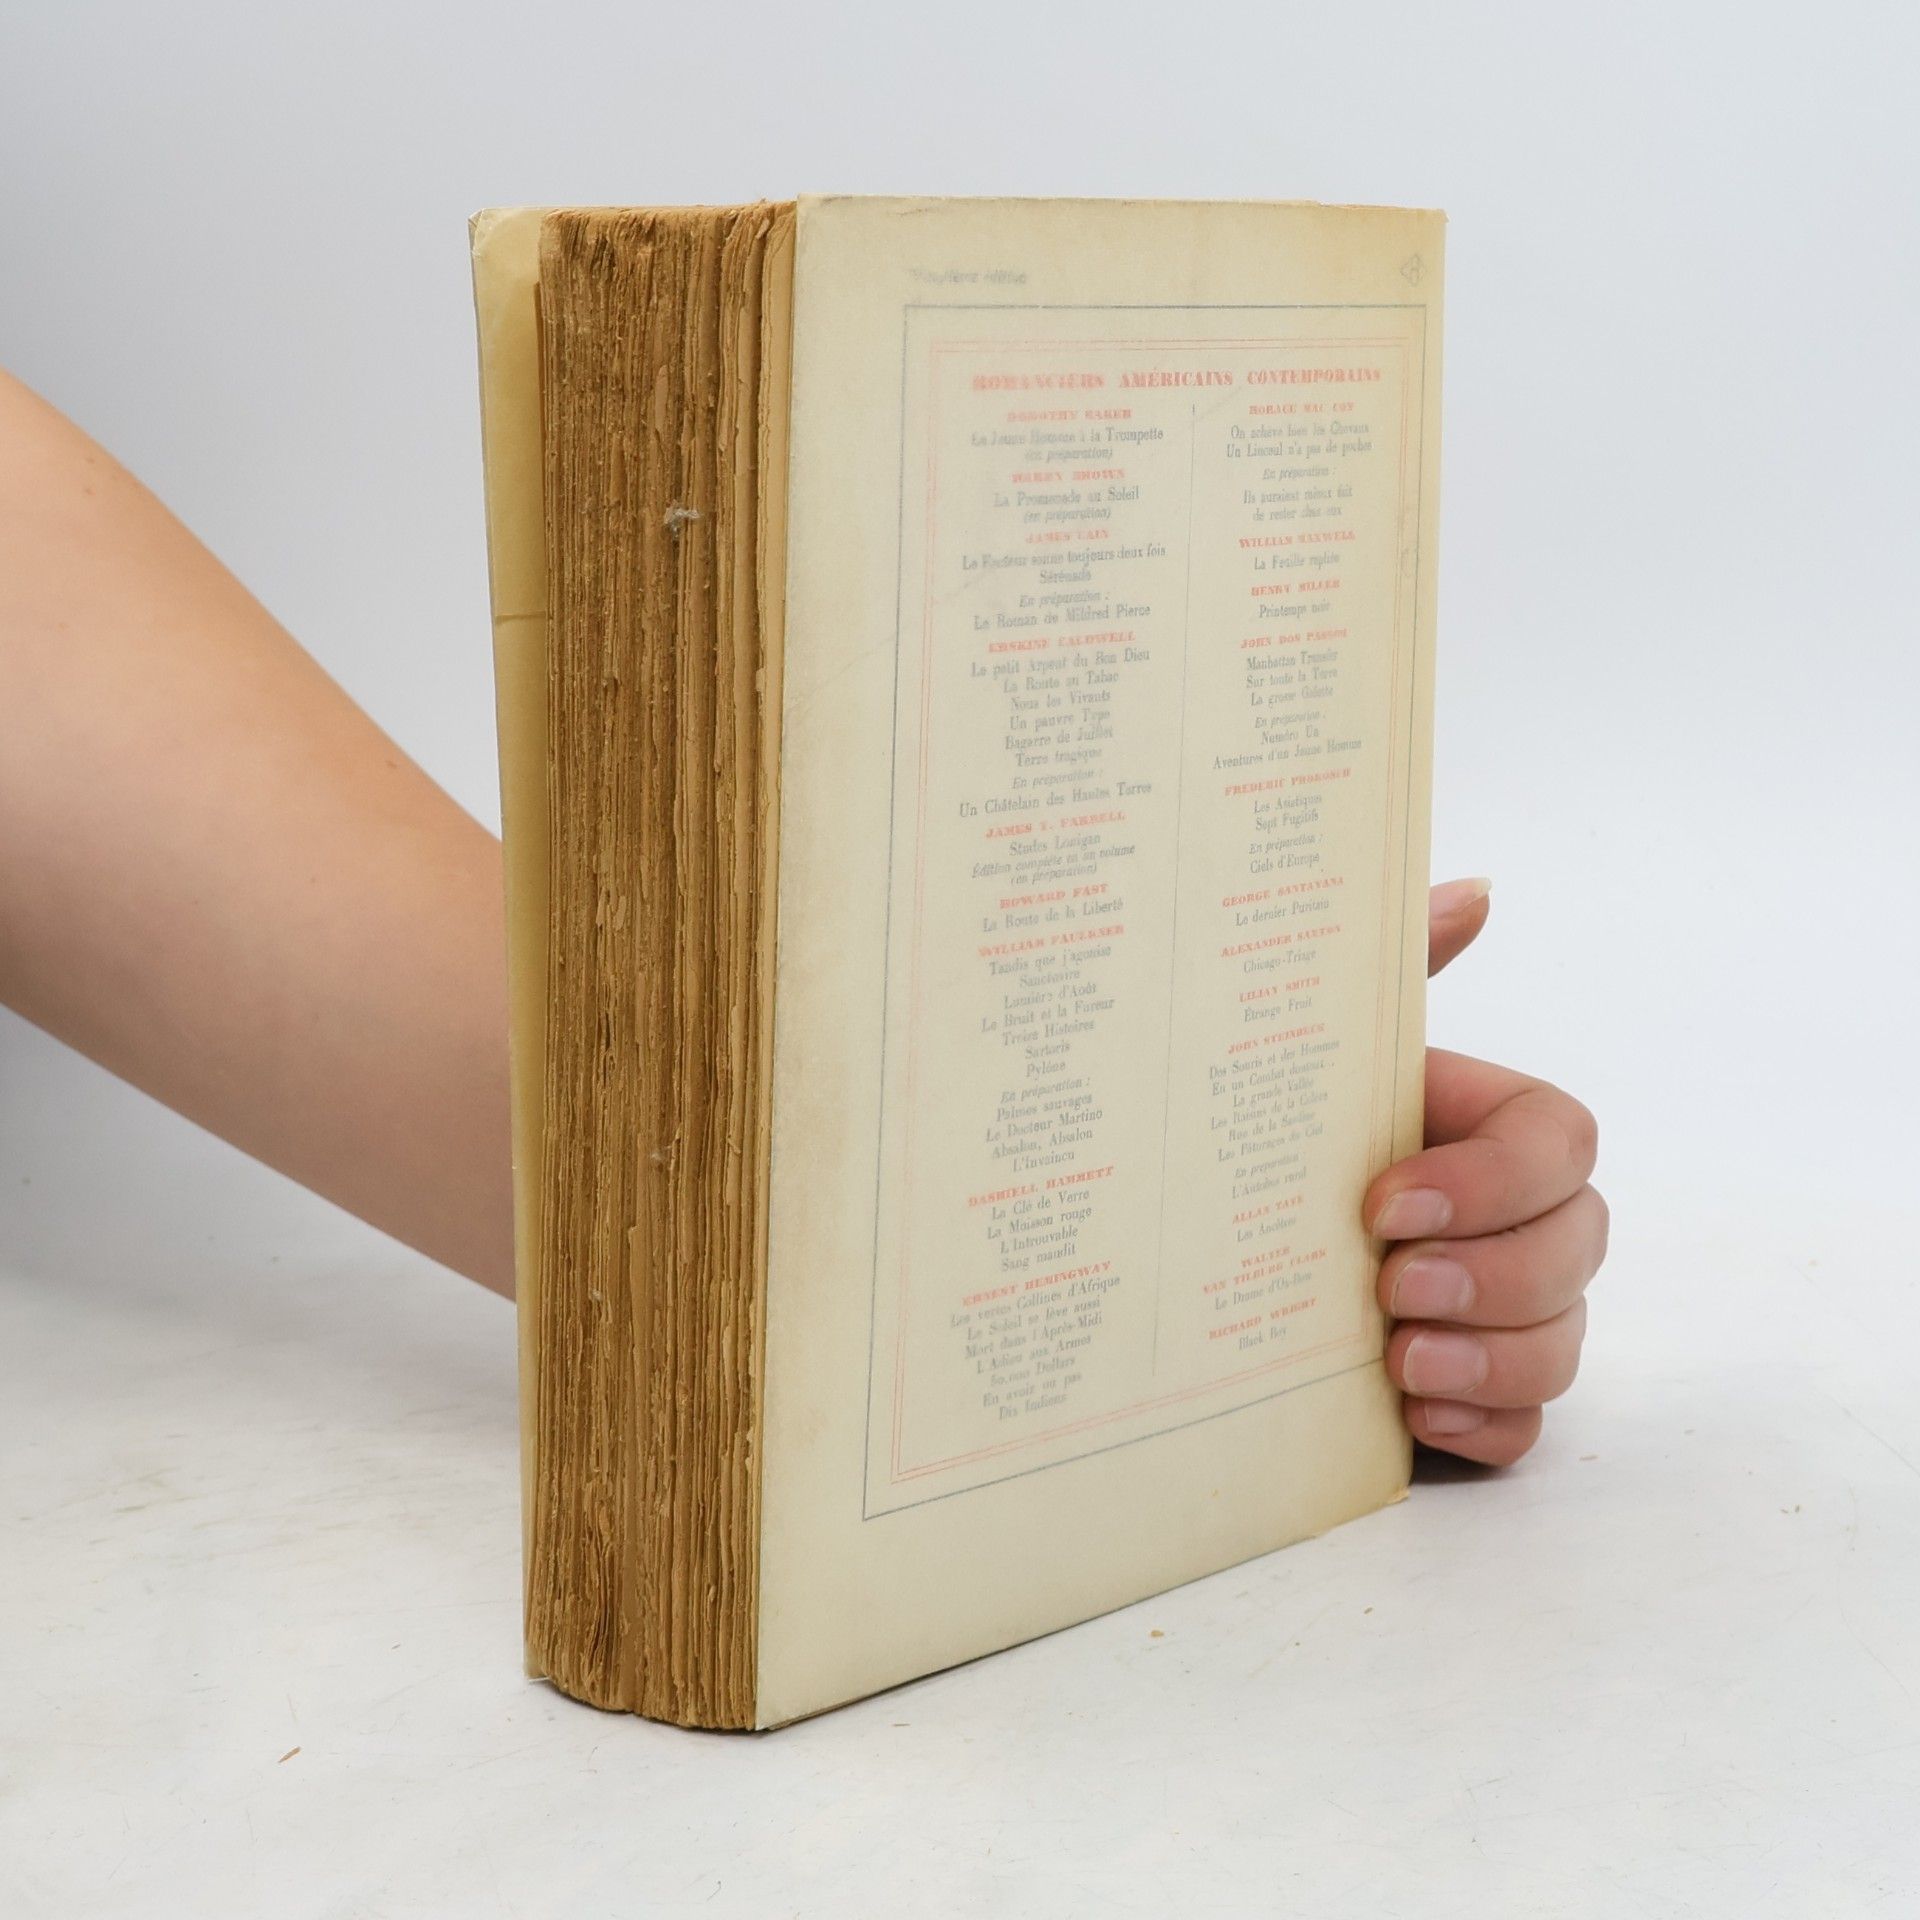 ROMANCIERS AMÉRICAINS CONTEMPORAINS
DOROTHY BAKER
Le Jeune Homme à la Trompette
(en préparation)
HARRY BROWN
La Promenade au Soleil
(en préparation)
JAMES CAIN
Le Facteur sonne toujours deux fois
Sérénade
En préparation :
Le Roman de Mildred Pierce
ERSKINE CALDWELL
Le petit Arpent du Bon Dieu
La Route au Tabac
Nous les Vivants
Un pauvre Type
Bagarre de Juillet
Terre tragique
En préparation :
Un Châtelain des Hautes Terres
JAMES T. FARRELL
Studs Lonigan
Édition complète en un volume
(en préparation)
HOWARD FAST
La Route de la Liberté
WILLIAM FAULKNER
Tandis que j'agonise
Sanctuaire
Lumière d'Août
Le Bruit et la Fureur
Treize Histoires
Sartoris
Pylône
En préparation :
Palmes sauvages
Le Docteur Martino
Absalon, Absalon
L'Invaincu
DASHIELL HAMMETT
La Clé de Verre
La Moisson rouge
L'Introuvable
Sang maudit
ERNEST HEMINGWAY
Les vertes Collines d'Afrique
Le Soleil se lève aussi
Mort dans l'Après-Midi
L'Adieu aux Armes
50.000 Dollars
En avoir ou pas
Dix Indiens
HORACE MAC COY
On achève bien les Chevaux
Un Linceul n'a pas de poches
En préparation :
Ils auraient mieux fait
de rester chez eux
WILLIAM MAXWELL
La Feuille repliée
HENRY MILLER
Printemps noir
JOHN DOS PASSOS
Manhattan Transfer
Sur toute la Terre
La grosse Galette
En préparation :
Numéro Un
Aventures d'un Jeune Homme
FREDERIC PROKOSCH
Les Asiatiques
Sept Fugitifs
En préparation :
Ciels d'Europe
GEORGE SANTAYANA
Le dernier Puritain
ALEXANDER SAXTON
Chicago-Triage
LILIAN SMITH
Étrange Fruit
JOHN STEINBECK
Des Souris et des Hommes
En un Combat douteux...
La grande Vallée
Les Raisins de la Colère
Rue de la Sardine
Les Pâturages du Ciel
En préparation
L'Autobus rond
ALLAN TATE
Les Ancêtres
WALTER
VAN TILBURG CLARK
Le Drame d'Ox-Bow
RICHARD WRIGHT
Black Boy